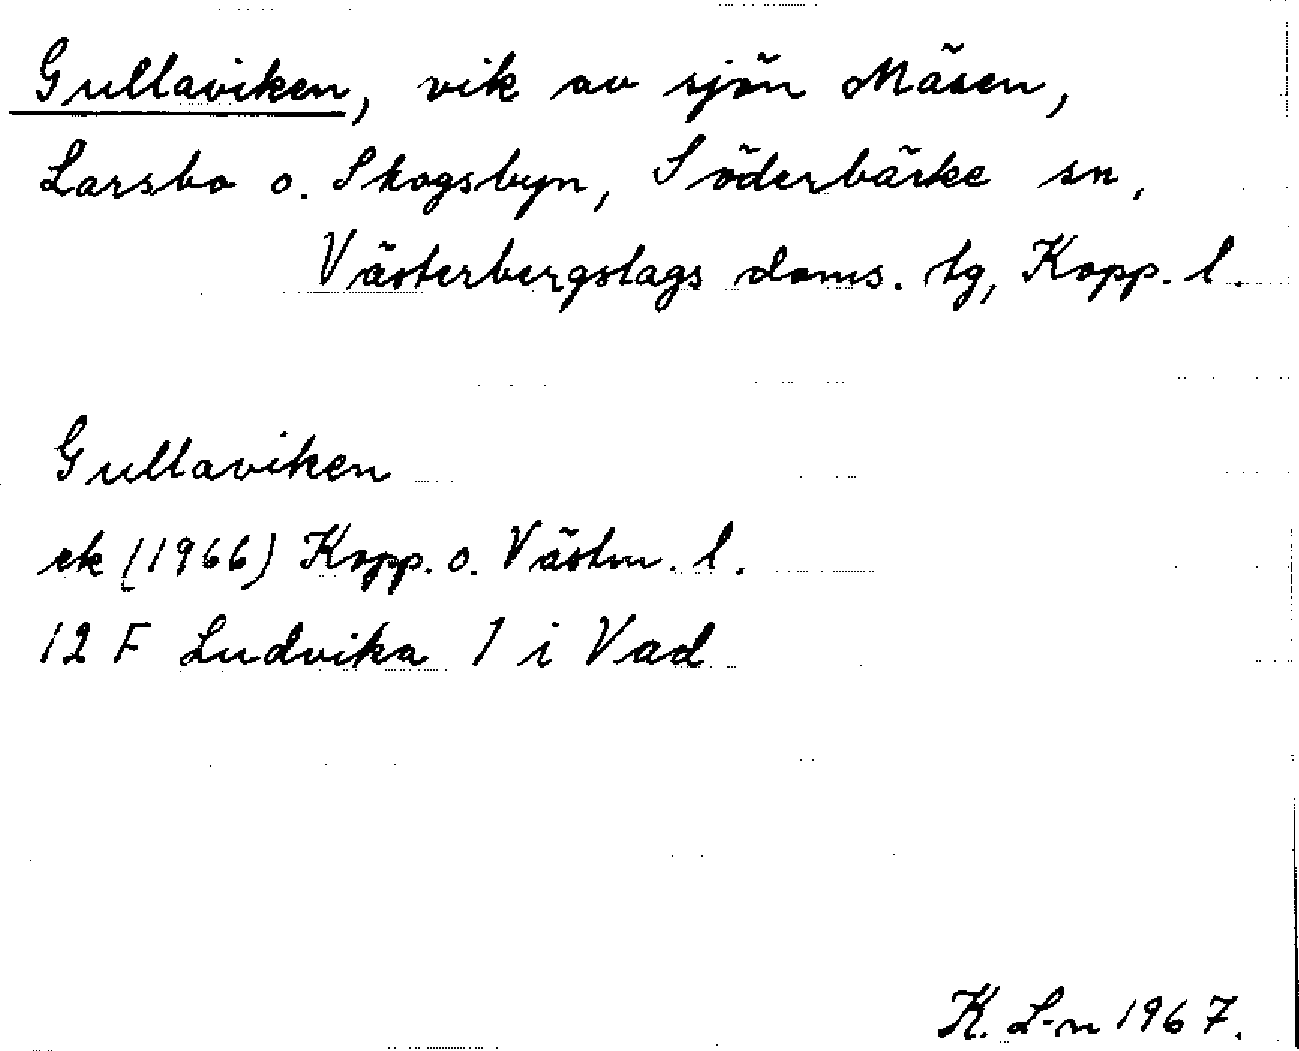 Gullaviken, vik av sjön Mäsen,
Larsbo o. Skogsbyn, Söderbärke sn,
Västerbergslags doms. tg, Kopp. l.
Gullaviken
ek (1966) Kopp. o. Västm. l.
12 F Ludvika 1 i Vad
K. L-n 1967.